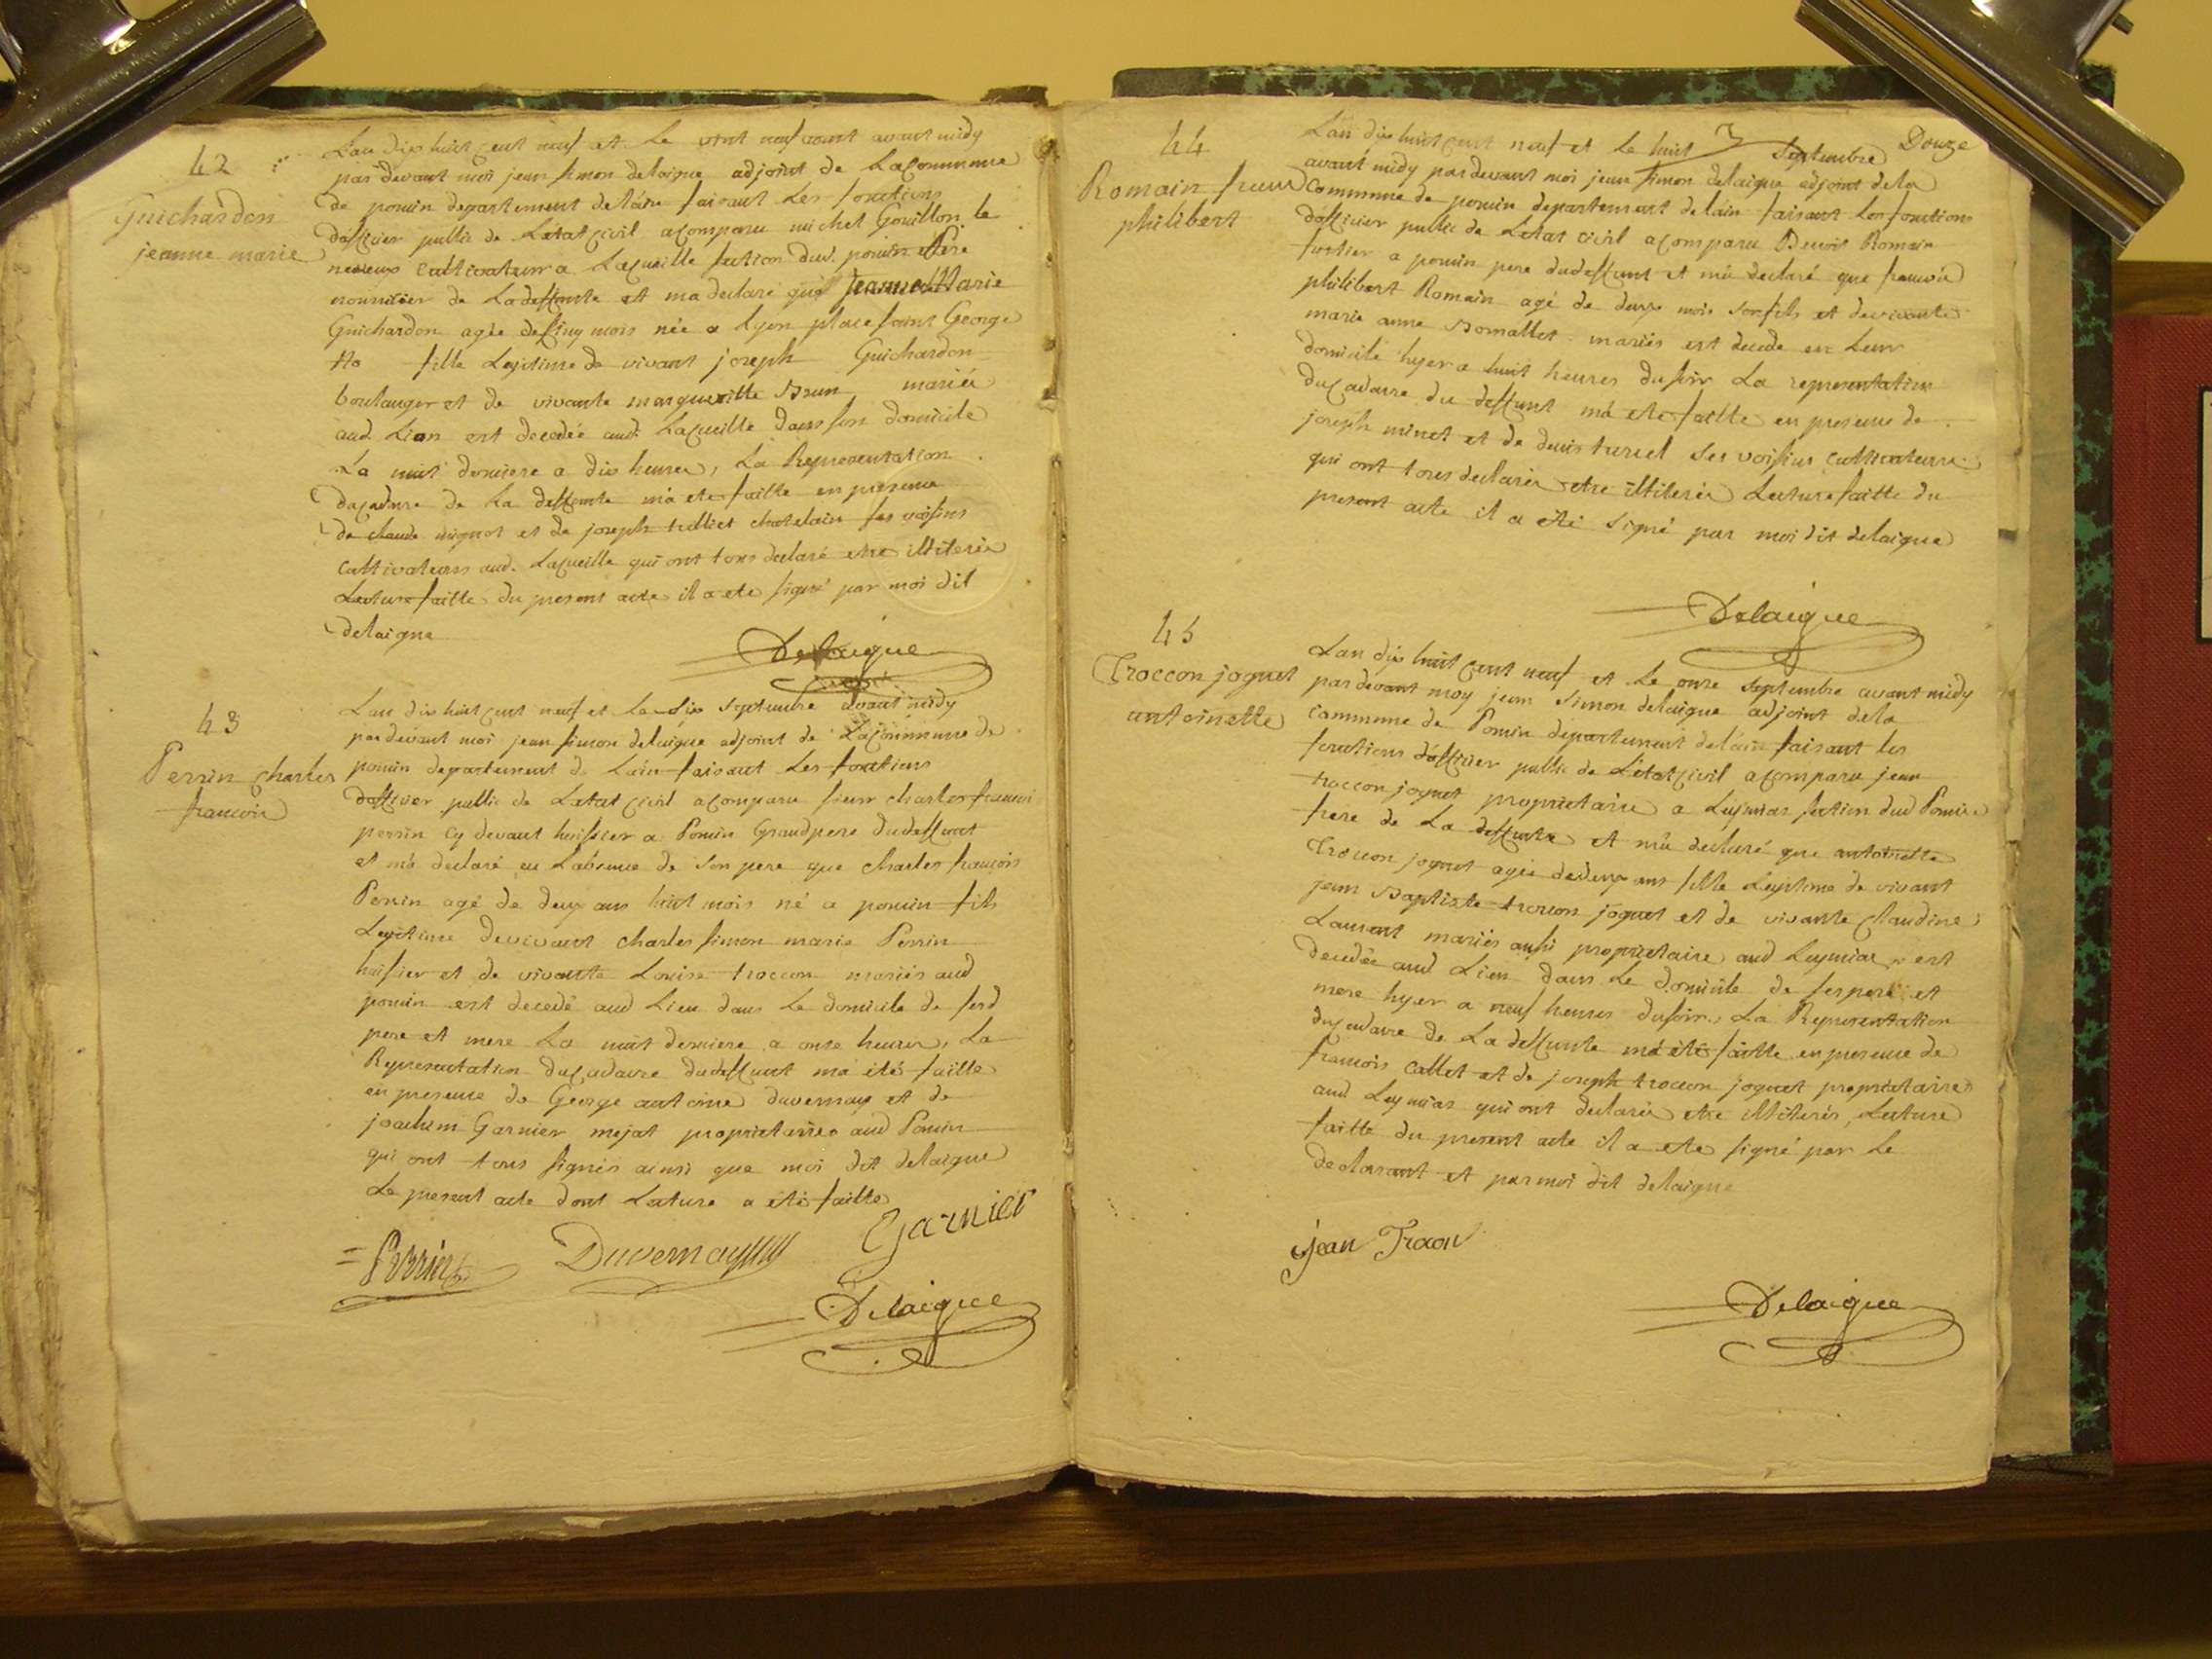 42
Guichardon
jeanne marie
Lan dix huit cent neuf et le vint neuf aout avant midy
par devant moi jean simon delaigue adjoint de la commune
de poncin departement de lain faisant les fonctions
dofficier public de letat civil a comparu michel Gouillon le
cultivateur a lacueille section dud. poncin Pere
nourricier de la deffunte et ma declaré que jeanne Marie
Guichardon agée de cinq mois née a lyon place saint George
No fille legitime de vivant joseph Guichardon
boulanger et de vivante margueritte Brun mariés
aud. Lion est decedée aud. Lacueille dans son domicile
La nuit derniere a dix heures, La Representation
du cadavre de La deffunte ma eté faitte en presence
de claude mignot et de joseph tulliet chatelain ses voisins
Cultivateurs aud. Lacueille qui ont tous declaré etre illiterés
Lecture faitte du present acte il a eté signé par moi dit
delaigue
Delaigue
43
Perrin charles
francois
Lan dix huit cent neuf et le dix septembre avant midy
par devant moi jean simon delaigue adjoint de La commune de
poncin departement de Lain faisant Les fonctions
dofficier public de Letat civil a comparu sieur charles francois
perrin cy devant huissier a Poncin Grand pere du deffunt
et ma declaré en Labsence de son pere que charles francois
Perrin agé de deux ans huit mois né a poncin fils
Legitime de vivant charles simon marie Perrin
huissier et de vivante Louise troccon mariés aud
poncin est decedé aud Lieu dans Le domicile de sesd
pere et mere La nuit derniere a onze heures, La
Representation du cadavre du deffunt ma eté faitte
en presence de George antoine duvernay et de
joachim Garnier mejat proprietaires aud Poncin
qui ont tous signés ainsi que moi dit delaigue
Le present acte dont Lecture a eté faitte
Perrin Duvernay Garnier
Delaigue
Douze
44
Romain francois
philibert
Lan dix huit cent neuf et le huit septembre
avant midy par devant moi jean simon delaigue adjoint de la
Commune de poncin departement de lain faisant les fonctions
dofficier public de Letat civil a comparu Benoit Romain
a poncin pere du deffunt et ma declaré que francois
philibert Romain agé de deux mois son fils et de vivante
marie anne Bomallet mariés est decedé en Leur
domicile hyer a huit heures du soir La representation
du cadavre du deffunt ma eté faitte en presence de
joseph minet et de denis turrel ses voisins cultivateurs
qui ont tous declarés etre illiterés Lecture faitte du
present acte il a eté signé par moi dit delaigue
Delaigue
45
Troccon joguet
antoinette
Lan dix huit cent neuf et Le onze septembre avant midy
par devant moy jean simon delaigue adjoint de la
Commune de Poncin departement de lain faisant les
fonctions dofficier public de Letat civil a comparu jean
troccon joguet proprietaire a Leymiat section dud Poncin
frere de La deffunte et ma declaré que antoinette
Troccon joguet agée de deux ans fille Legitime de vivant
jean Baptiste troccon joguet et de vivante Claudine
Laurent mariés aussi proprietaire aud Leymiat est
decedée aud Lieu dans Le domicile de ses pere et
mere hyer a neuf heures du soir, La Representation
du cadavre de La deffunte ma eté faitte en presence de
francois Callet et de joseph troccon joguet proprietaires
aud Leymiat qui ont declarés etre illiterés, Lecture
faitte du present acte il a eté signé par Le
declarant et par moi dit delaigue
jean Trocon
Delaigue